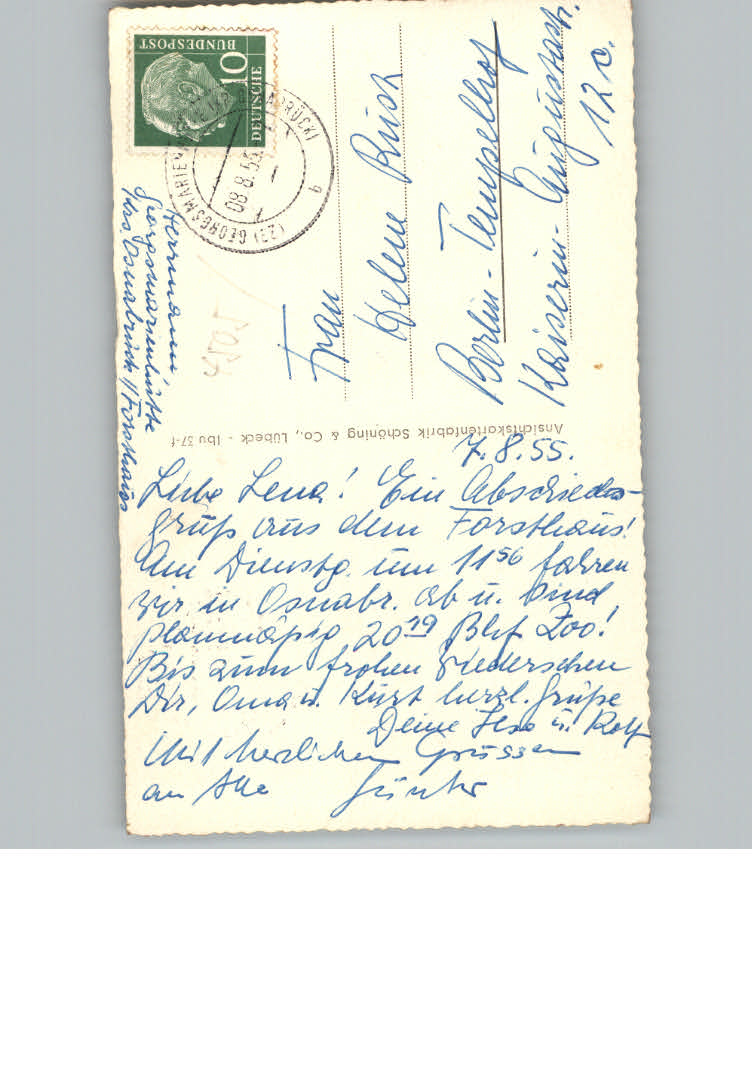 7.8.55.
Liebe Lena! Ein Abschieds-
gruß aus dem Forsthaus!
Am Dienstg. um 11 56 fahren
wir in Osnabr. ab u. sind
planmäßig 20 19 Bhf Zoo!
Bis zum frohen Wiedersehen
Dir, Oma u. Kurt herzl. Grüße
Deine Ilse u. Rolf
Mit herzlichen Grüssen
an Alle Günter
Frau
Helene
Berlin-Tempelhof
Kaiserin-Augustastr.
12 c.
Herrmann
Georgsmarienhütte
Krs. Osnabrück // Forsthaus
DEUTSCHE
BUNDESPOST
10
(23) GEORGSMARIENHÜTTE (KR OSNABRÜCK)
08.8.55
a
Ansichtskartenfabrik Schöning & Co., Lübeck - Ibu 37-f